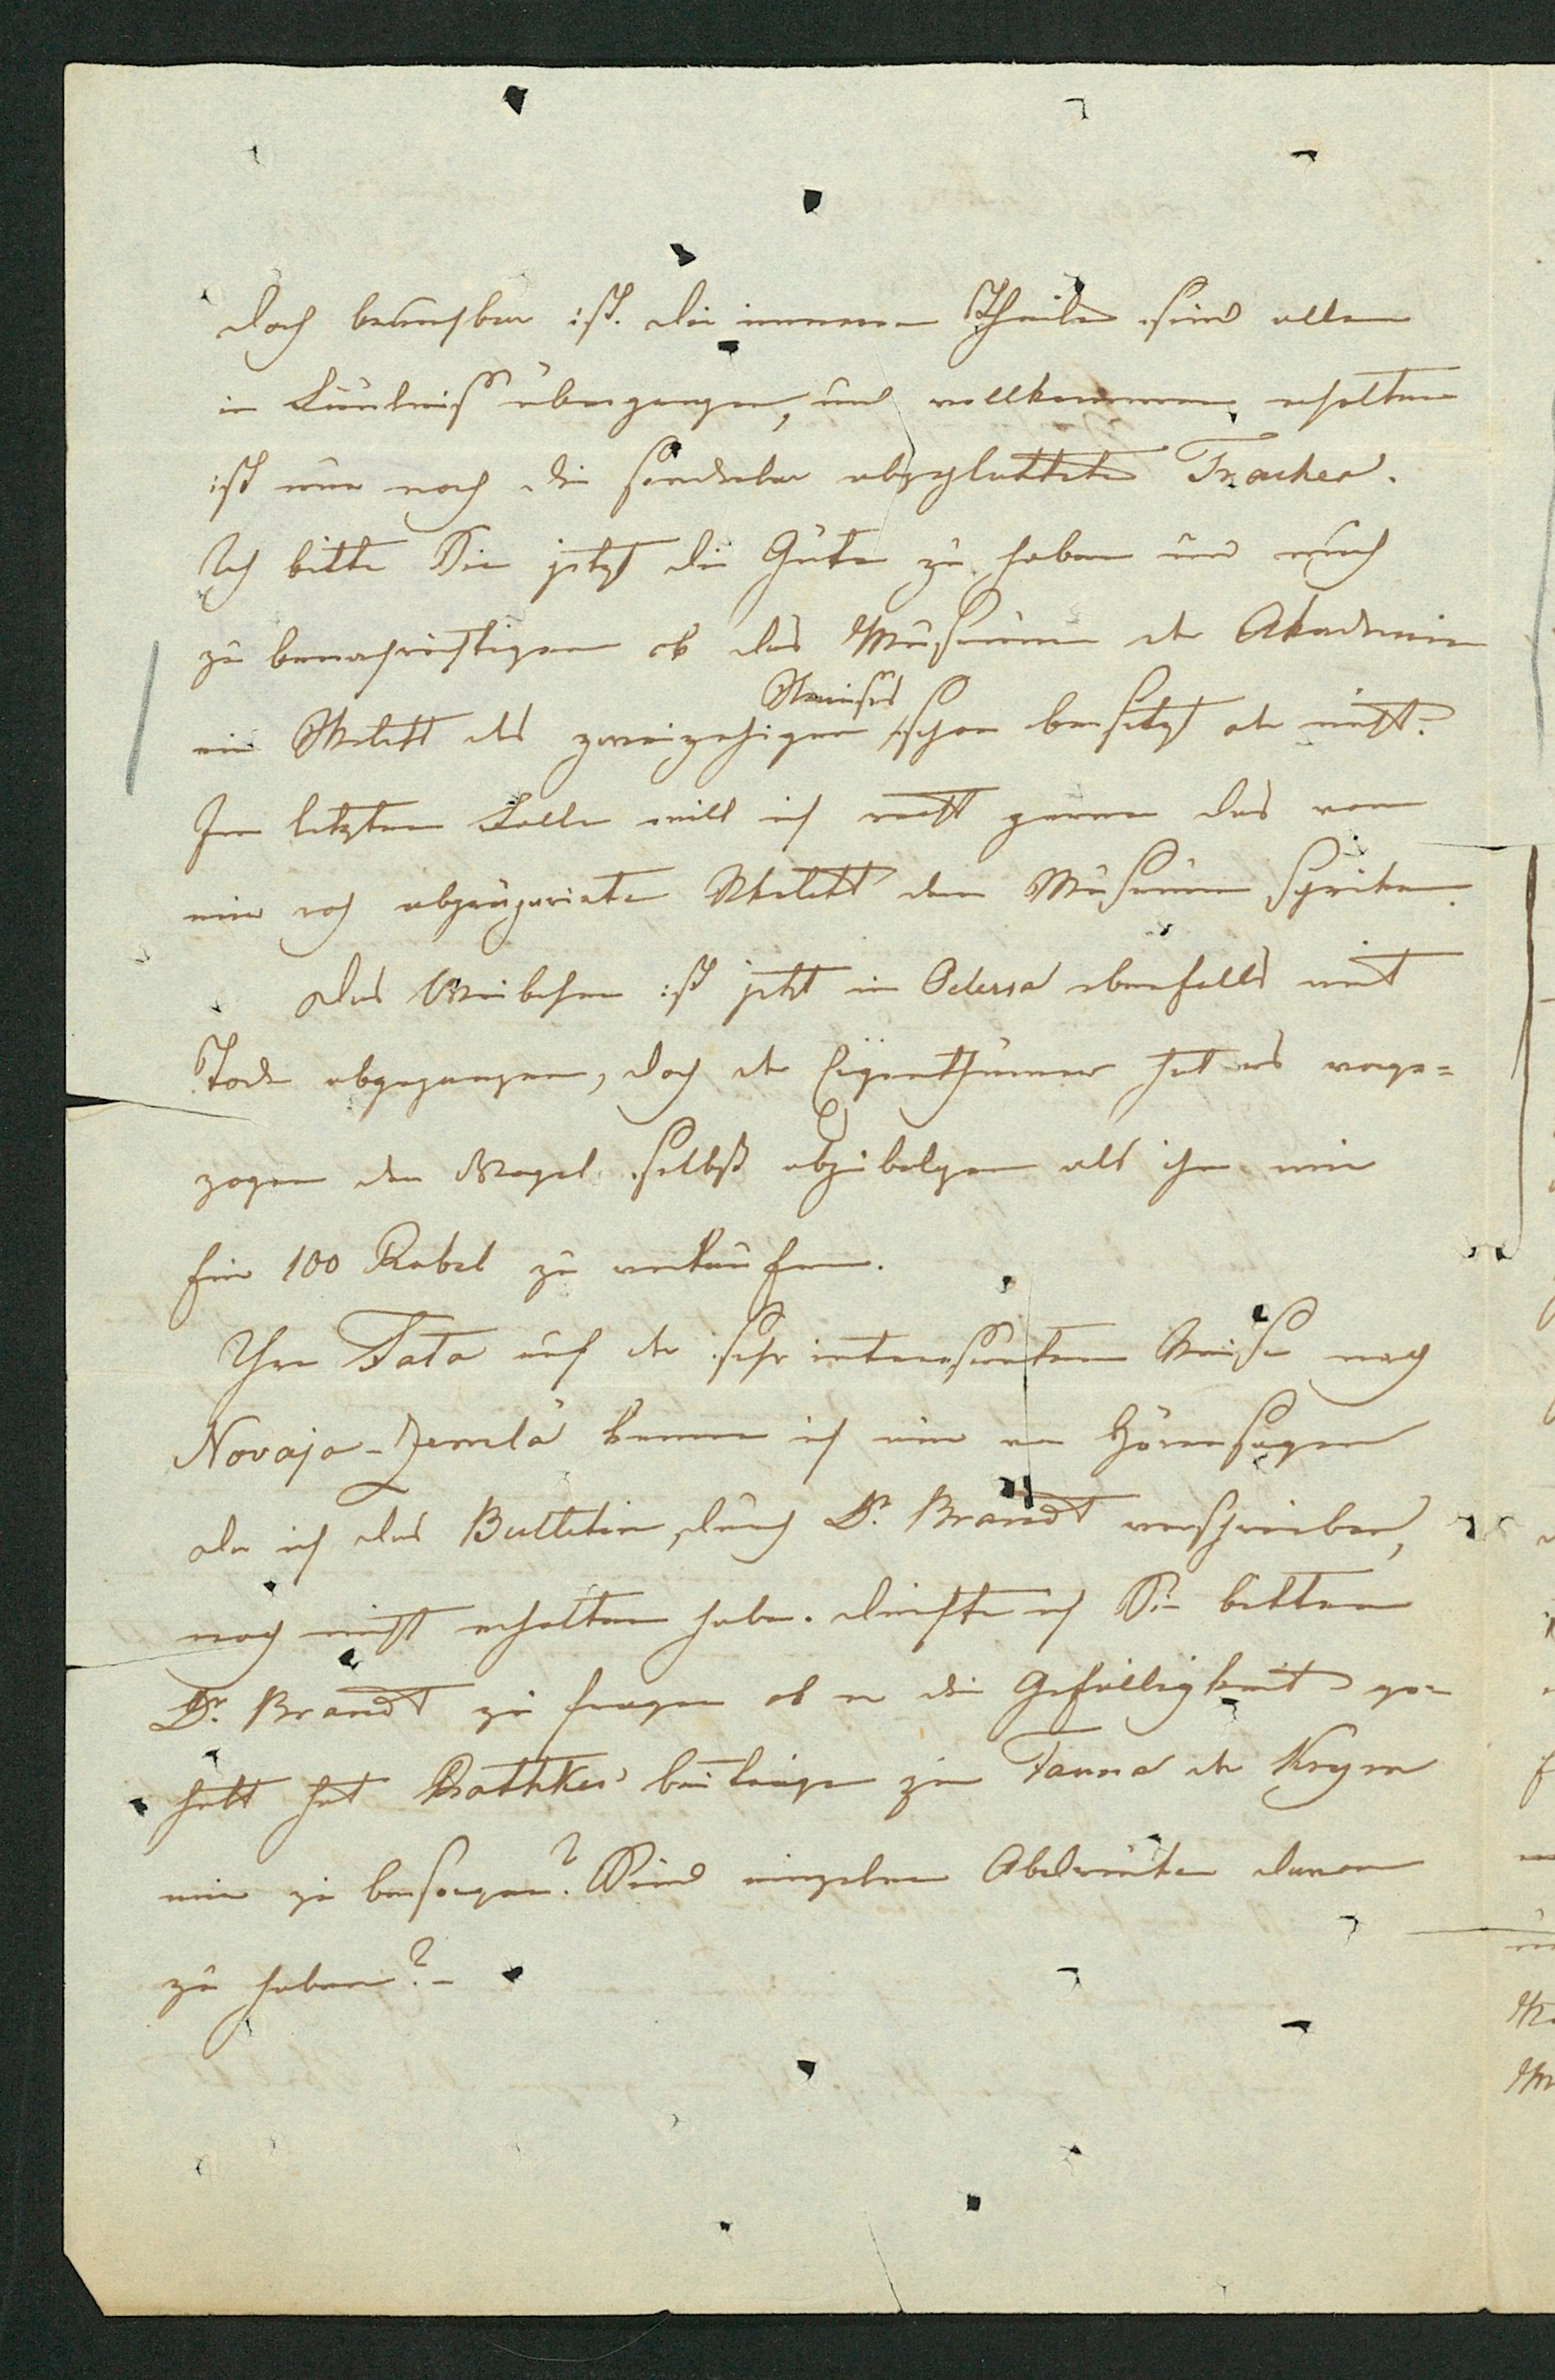 doch brauchbar ist. Die inneren Theile sind alle
in Fäulniß übergangen, und vollkommen erhalten
ist nur noch die sonderbar abgeplattete Trachea.
Ich bitte Sie jetzt die Güte zu haben und mich
zu benachrichtigen ob das Museum der Akademie
Straußes
ein Skelett des zweizehigen schon besitzt oder nicht?
Im letzten Falle will ich recht gerne das von
mir roh abpräparirte Skelett dem Museum schicken.
Das Weibchen ist jetzt in Odessa ebenfalls mit
Tode abgegangen, doch der Eigenthümer hat es vorge-
zogen den Vogel selbst abzubalgen als ihn mir
für 100 Rubel zu verkaufen.
Ihre Fata auf der sehr interessanten Reise nach
Novaja-Zemlä kenne ich nur von Hörensagen
da ich das Bulletin, durch Dr. Brandt verschrieben,
noch nicht erhalten habe. Dürfte ich Sie bitten
Dr. Brandt zu fragen ob er die Gefälligkeit ge-
habt hat Rathkes' beiträge zur Fauna der Krym
mir zu besorgen? Sind einzelne Abdrücke davon
zu haben? -